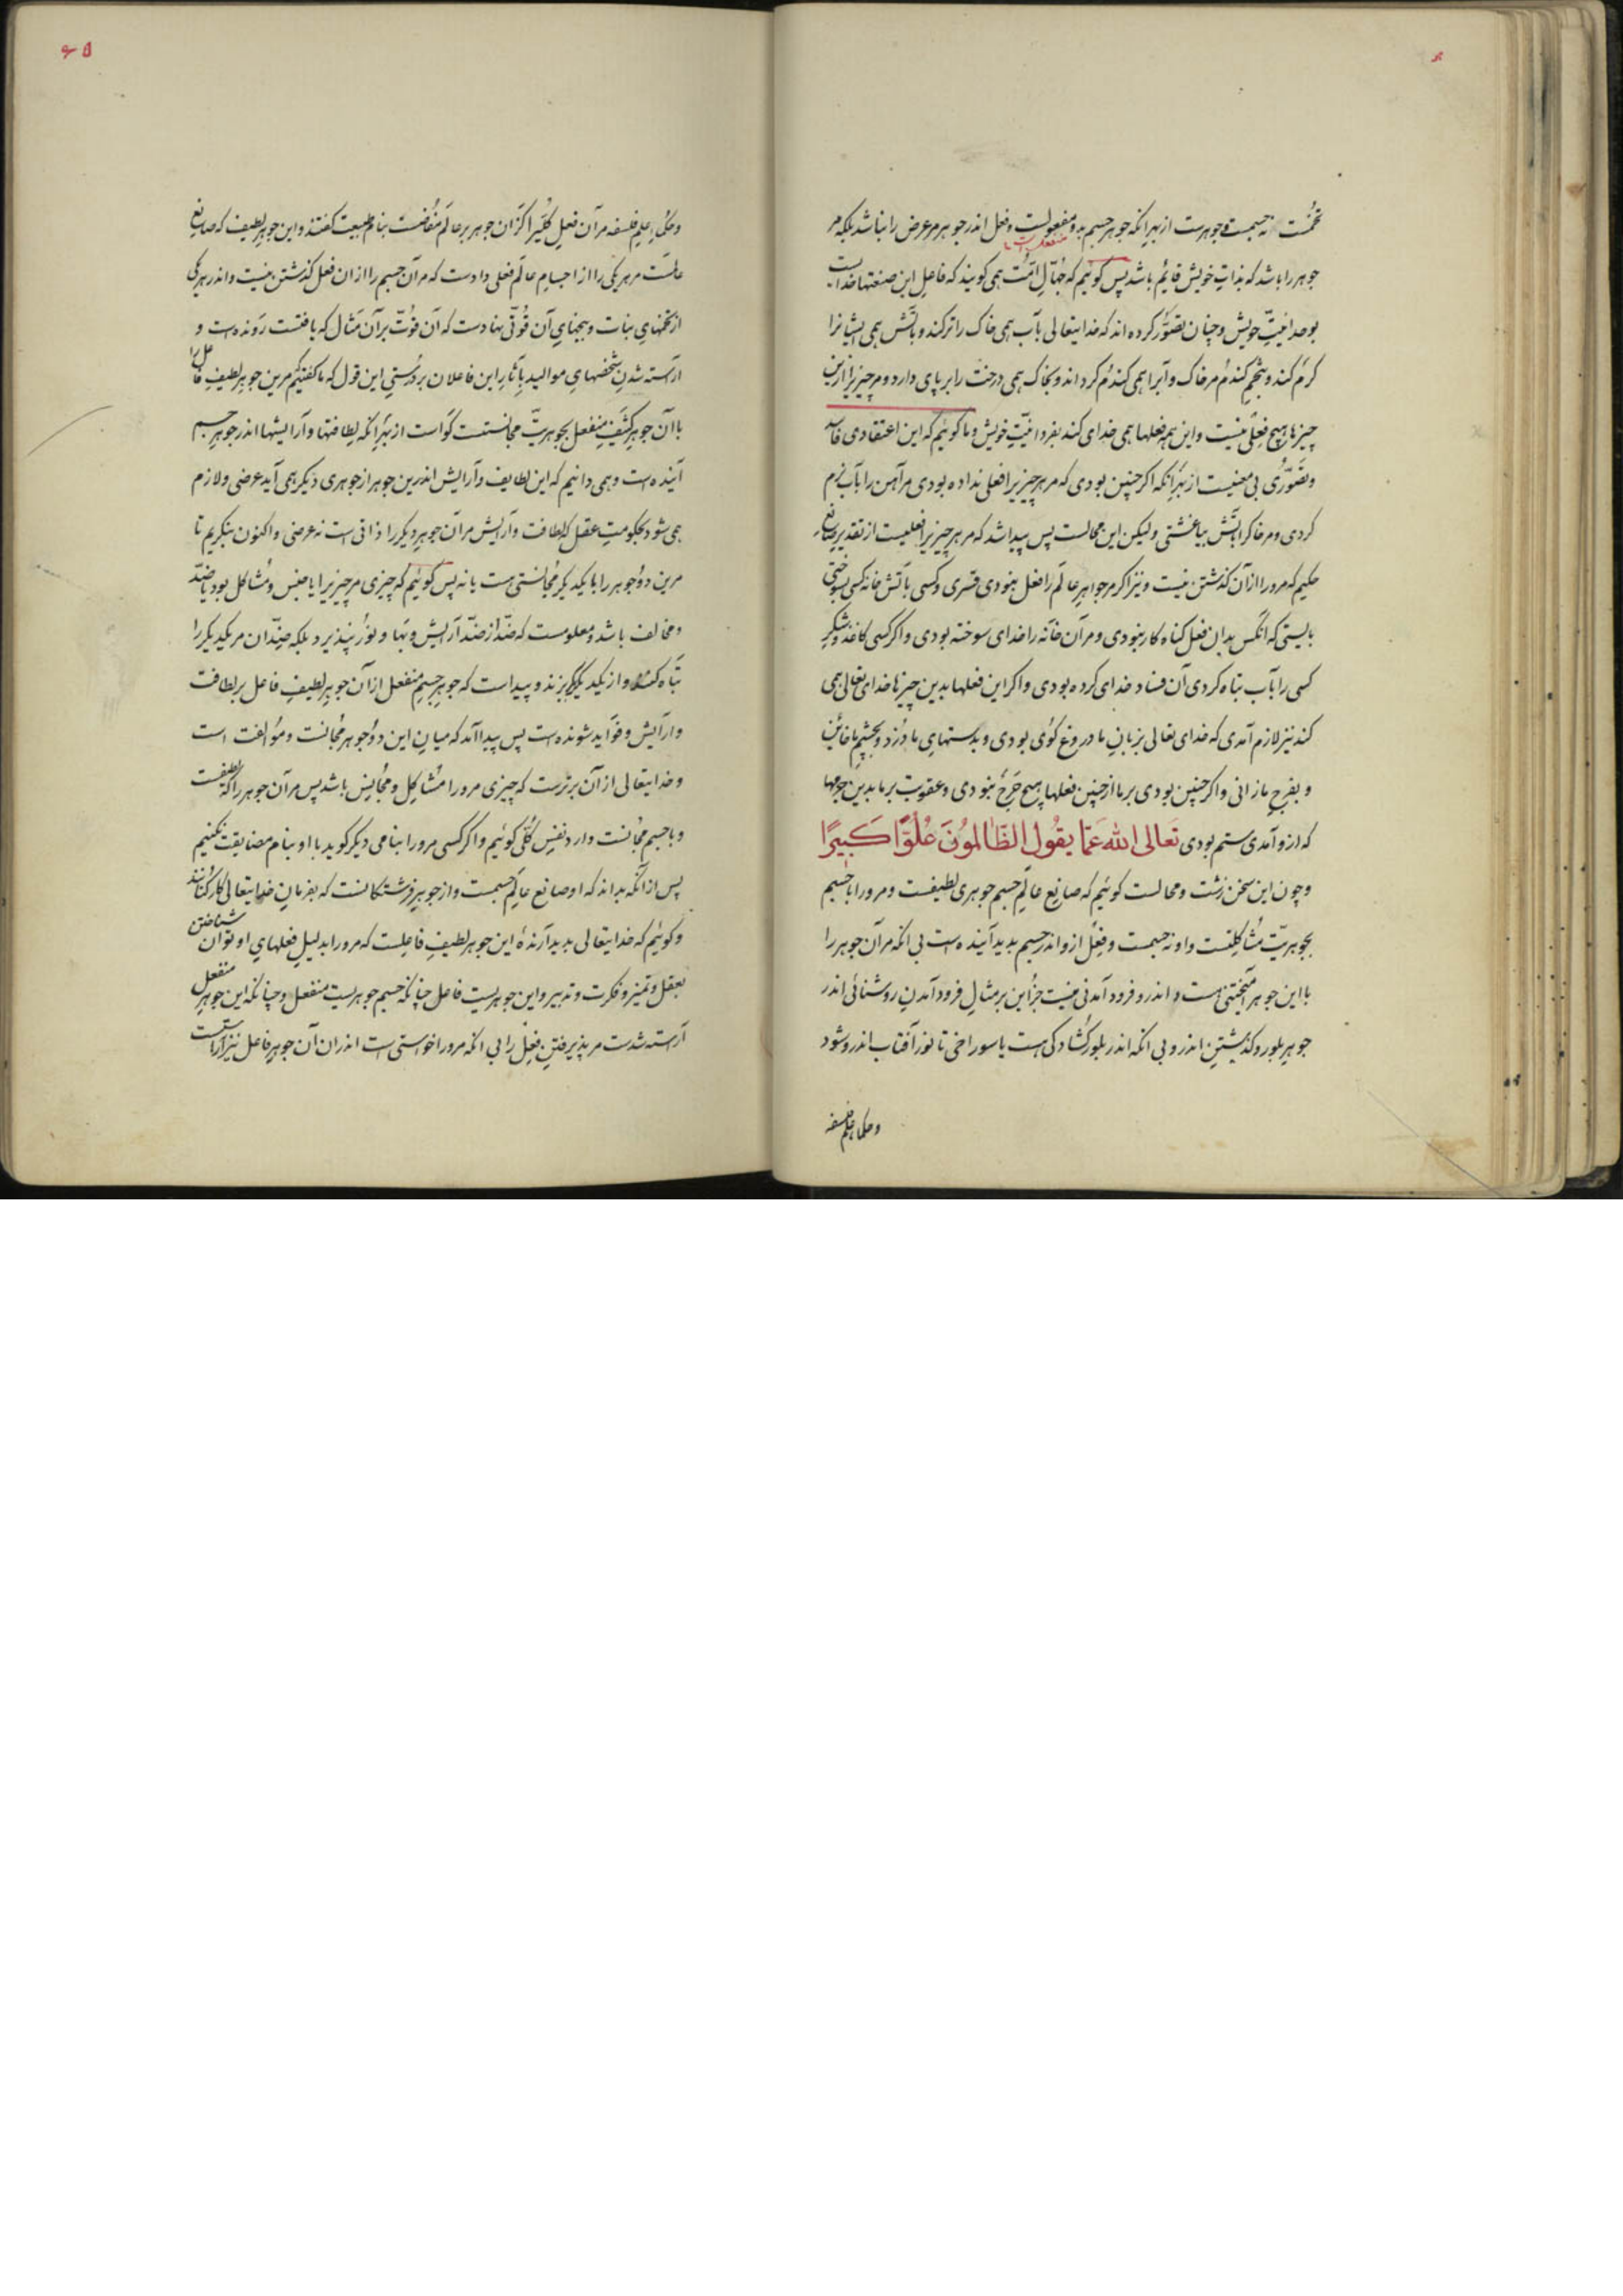 تخمست نه جسمست و جوهرست از بهر انکه جوهر جسم بدو مفعولست و فعل اندر جوهر مر عرض را نباشد بلکه مر
منفعلست
جوهر را باشد که بذات خویش قایم باشد پس گوئیم که جهّال امّت همی گویند که فاعل این صنعتها خدایست
بوحدانیّت خویش و چنان تصوّر کرده اند که خدایتعالی بآب همی خاک را تر کند و بآتش همی ایشانرا
گرم کند و بتخم گندم مر خاک و آبرا همی گندم گرداند و بخاک همی درخت را بر پای دارد و مر چیزیرا ازین
چیزها هیچ فعلی نیست و این همه فعلها همی خدای کند بفردانیّت خویش و ما گوئیم که این اعتقادی فاسد
و تصوّری بی معنیست از بهر انکه اگر چنین بودی که مر هر چیزیرا فعلی نداده بودی مر آهن را بآب نرم
کردی و مر خاک را بآتش بیاغشتی ولیکن این محالست پس پیدا شد که مر هر چیزیرا فعلیست از تقدیر صانع
حکیم که مرورا از آن گذشتن نیست و نیز اگر مر جواهر عالم را فعل نبودی قسری و کسی بآتش خانه کسی بسوختی
بایستی که انکس بدان فعل گناه کار نبودی و مر آن خانه را خدای سوخته بودی و اگر کسی کاغذ و شکر
کسی را بآب تباه کردی آن فساد خدای کرده بودی و اگر این فعلها بدین چیزها خدای تعالی همی
کند نیز لازم آمدی که خدای تعالی بزبان ما دروغ گوی بودی و بدستهای ما دزد و بچشم ما خائن
و بفرج ما زانی و اگر چنین بودی بر ما از چنین فعلها هیچ حرج نبودی و عقوبت بر ما بدین جرمها
که ازو آمدی ستم بودی تعالى الله عَمّا يقُول الظّالمونَ عُلُوًّا كَبيرًا
و چون این سخن زشت و محالست گوئیم که صانع عالم جسم جوهری لطیفست و مرورا با جسم
بجوهریّت مشاکلتست و او نه جسمست و فعل ازو اندر جسم پدید آینده است بی انکه مر آن جوهر را
با این جوهر آمیختنی است و اندرو فرود آمدنی نیست جز این بر مثال فرود آمدن روشنائی اندر
جوهر بلور و گذشتن اندرو بی انکه اندر بلور گشادگی هست یا سوراخی تا نور آفتاب اندرو شود
و حکماء علم فلسفه
و حکماء علم فلسفه مر آن فعل کلّی را کزان جوهر بر عالم مفاضست بنام طبیعت گفتند و این جوهر لطیف که صانع
عالمست مر هر یکی را از اجسام عالم فعلی دادست که مر آن جسم را از ان فعل گذشتن نیست و اندر هر یکی
از تخمهای نبات و بیخهای آن قوّتی نهادست که آن قوّت بر آن مثال که یافتست رونده است و
آراسته شدن شخصهای موالید بآثار این فاعلان بر درستی این قول که ما گفتیم مرین جوهر لطیف فاعل را
با آن جوهر کثیف منفعل بجوهریّت مجانستست گواست از بهر انکه لطافتها و آرایشها اندر جوهر جسم
آینده است و همی دانیم که این لطایف و آرایش اندرین جوهر از جوهری دیگر همی آید عرضی و لازم
همی شود بحکومت عقل که لطافت و آرایش مر آن جوهر دیگر را ذاتی است نه عرضی و اکنون بنگریم تا
مرین دو جوهر را با یکدیگر مجانستی هست یا نه پس گوئیم که چیزی مر چیزیرا یا جنس و مشاکل بود یا ضدّ
و مخالف باشد و معلومست که ضدّ از ضدّ آرایش و بها و نور نپذیرد بلکه ضدّان مر یکدیگر را
تباه کنند و از یکدیگر گریزند و پیداست که جوهر جسم منفعل از آن جوهر لطیف فاعل بر لطافت
و آرایش و فواید شونده است پس پیدا آمد که میان این دو جوهر مجانست و موالفت است
و خدایتعالی از آن برترست که چیزی مرورا مشاکل و مجانس باشد پس مر آن جوهر را که لطیفست
و با جسم مجانست دارد نفس کلّی گوئیم و اگر کسی مرورا بنامی دیگر گوید با او بنام مضایقت نکنیم
پس از آنکه بداند که او صانع عالم جسمست و از جوهر فرشتگانست که بفرمان خدایتعالی کار کنانند
و گوئیم که خدایتعالی پدید آرندهٔ این جوهر لطیف فاعلست که مرورا بدلیل فعلهای او توان شناختن
بعقل و تمیز و فکرت و تدبیر و این جوهریست فاعل چنانکه جسم جوهریست منفعل و چنانکه این جوهر منفعل
آراسته شدست مر پذیرفتن فعل را بی انکه مرورا خواستی است اندران آن جوهر فاعل نیز آراستست